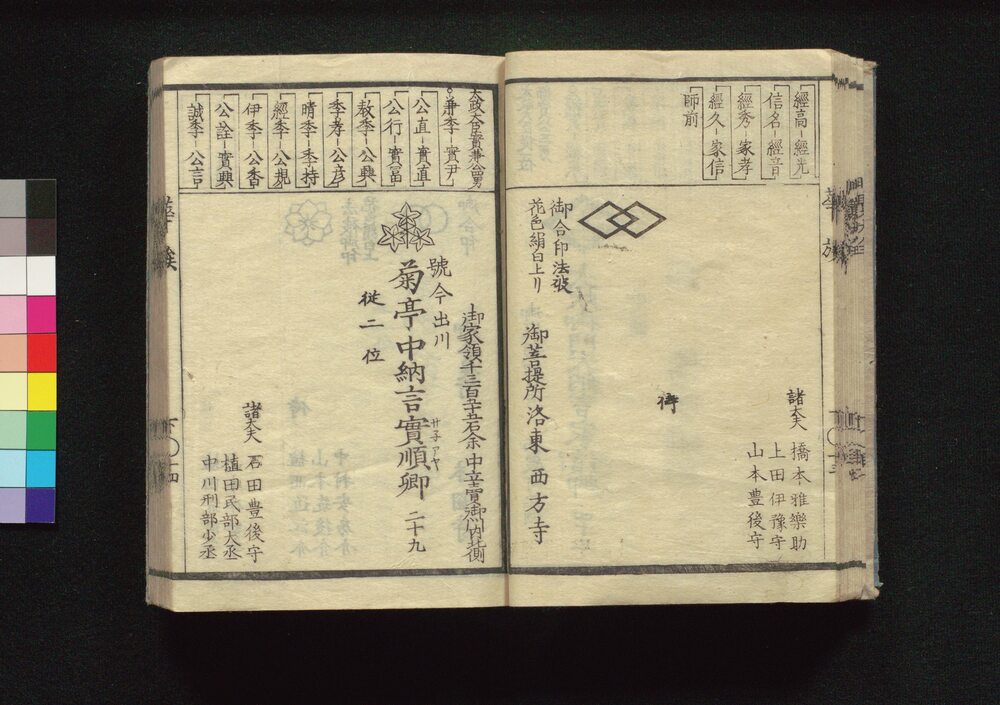 經高 經光
信名 經音
經秀 家孝
經久 家信
師前
諸大夫
橋本雅樂助
上田伊豫守
山本豊後守
侍
御合印法被
花色絹白上リ
御菩提所 洛東 西方寺
華族
太政大臣實兼公四男
兼季 實尹
公直 實直
公行 實富
教季 公興
季孝 公彦
晴季 季持
經季 公規
伊季 公香
公詮 實興
誠季 公言
御家領千三百五十五石余
號今出川
菊亭中納言實順卿 二十九
サネアヤ
從二位
諸大夫
石田豊後守
植田民部大丞
中川刑部少丞
華族
下 〇十四